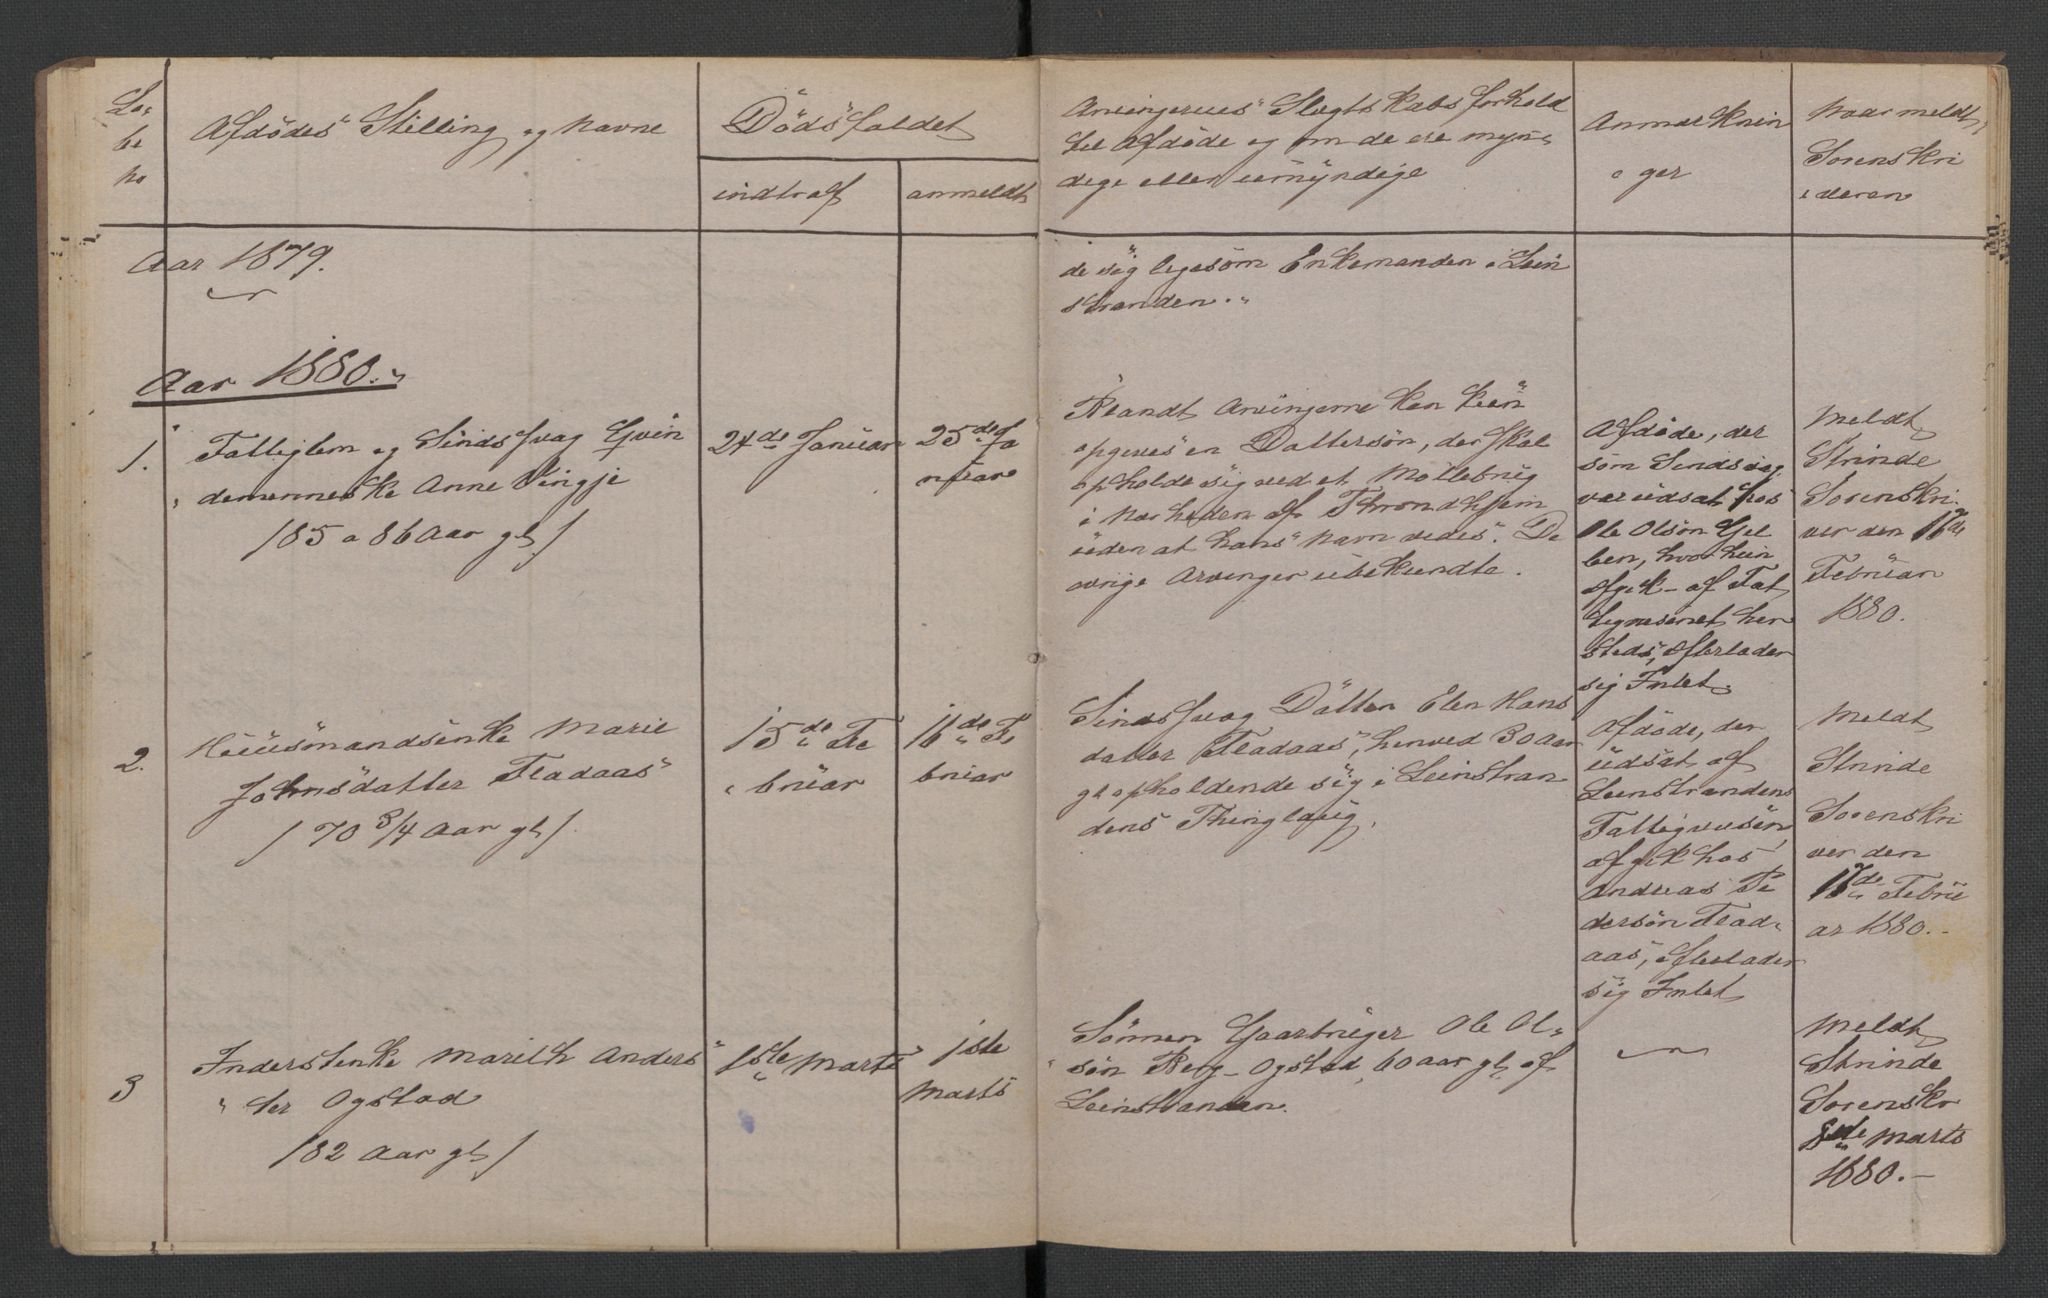 Lø-
be
No
Afdødes Stilling og Navne
Dödsfaldet
indtraf
anmeldt
Arvingernes Slegtskabsforhold
til Afdøde og om de ere myn-
dige eller umyndige
Anmærknin
ger
Naar meldt
Sorenskri
veren
Aar 1879.
de sig ligesom Enkemanden i Lein
stranden.
Aar 1880.
1.
Fattiglem og Sindssvag Qvin
demenneske Anne Vingje
/85 a 86 Aar gl/
24de Januar
25de Ja
nuar
Blandt Arvingerne kan kun
opgives en Dattersøn, der skal
opholde sig ved et Møllebrug
i Nærheden af Throndhjem
uden at hans Navn vides. De
øvrige Arvinger ubekundte.
Afdøde, der
som Sindsvag
var udsat hos
Ole Olsøn Gjel
ben, hvor hun
afgik - af Fat
tigvesenet her
steds, efterlader
sig Intet.
Meldt
Strinde
Sorenskri
ver den 17de
Februar
1880.
2.
Huusmandsenke Marie
Johnsdatter Fladaas
/70 3/4 Aar gl/
15de Fe
bruar
16de Fe
bruar
Sindssvag Datter Elen Hans
datter Fladaas, henved 30 Aar
gl opholdende sig i Leinstran
dens Thinglaug.
Afdøde, der
udsat af
Leinstrandens
Fattigvæsen,
afgik hos
Andreas Pe
dersøn Flad-
aas, efterlader
sig Intet
Meldt
Strinde
Sorenskri
ver den
17de Febru
ar 1880.-
3
Inderstenke Marith Anders
ter Ogstad
/82 Aar gl/
1ste Marts
1ste
Marts
Sønnen Gaardbruger Ole Ol-
søn Berg-Ogstad, 60 Aar gl af
Leinstranden.
Meldt
Strinde
Sorenskr
Marts
1880.-